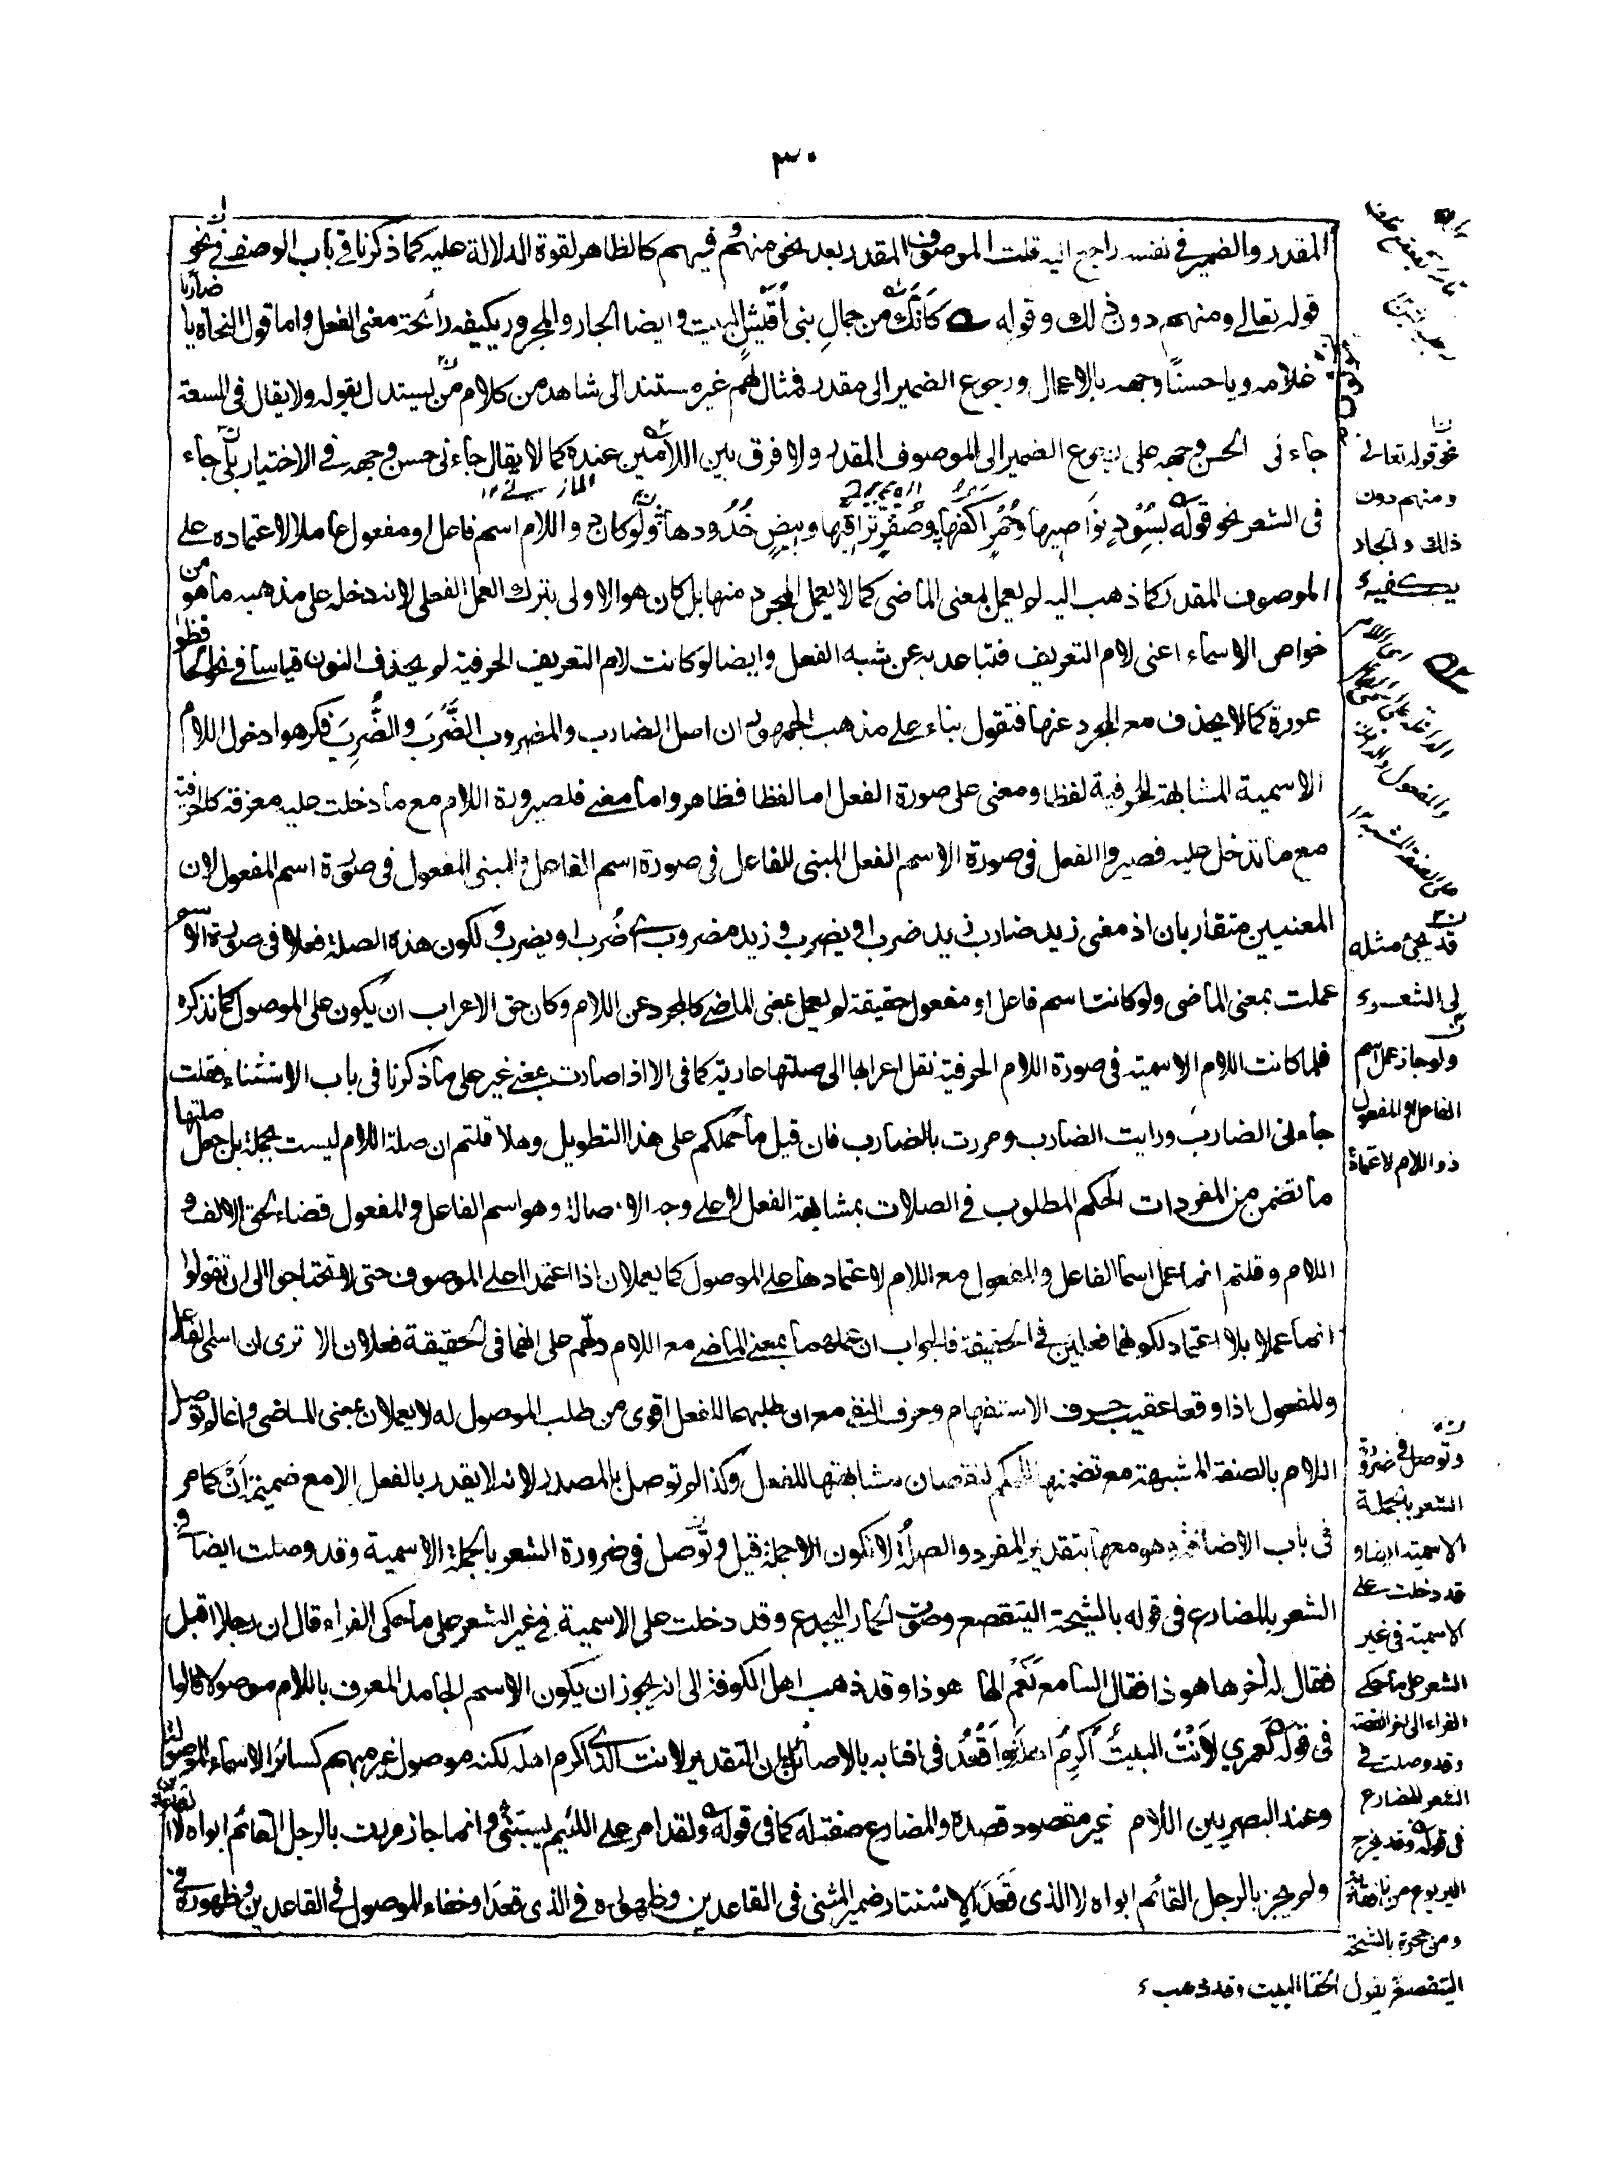 ٣٠
المقدر والضمير في نفسه راجع اليه قلت الموصوف المقدر بعد نحو منهم وفيهم كالظاهر لقوة الدلالة عليه كما ذكرنا في باب الوصف في نحو
قوله تعالى ومنهم دون ذلك وقوله كأنك من جمال بنى أقيش البيت وايضا الجار والمجرور يكفيه رائحة معنى الفعل واما قول النحاة يا ضاربا
غلامه ويا حسنًا وجهه بالاعمال ورجوع الضمير الى مقدر فمثال لهم غير مستند الى شاهد من كلام من يستدل بقوله ولا يقال في السعة
جاءنى الحسن وجهه على رجوع الضمير الى الموصوف المقدر ولا فرق بين اللامين عنده كما لا يقال جاءنى حسن وجهه في الاختيار بلى جاء
في الشعر نحو قوله بسُودٍ نواصيها وحُمْرٍ اكفها وصُفْرٍ تراقيها وبيضٍ خُدُودها ولو كان ذو اللام اسم فاعل او مفعول عاملا لاعتماده على
الموصوف المقدر كما ذهب اليه لم يعمل بمعنى الماضى كما لا يعمل المجرد منها بل كان هو الاولى بترك العمل الفعلى لانه دخله على مذهبه ما هو من
خواص الاسماء اعنى لام التعريف فتباعد به عن شبه الفعل وايضا لو كانت لام التعريف الحرفية لم يحذف النون قياسا في نحو الحافظو
عورة كما لا يحذف مع المجرد عنها فنقول بناء على مذهب الجمهور ان اصل الضارب والمضروب الضَّرَبَ والضُّرِبَ فكرهوا دخول اللام
الاسمية المشابهة للحرفية لفظا ومعنى على صورة الفعل اما لفظا فظاهر واما معنى فلصيرورة اللام مع ما دخلت عليه معرفة كالحرفية
مع ما تدخل عليه فصيروا الفعل في صورة الاسم الفعل المبنى للفاعل في صورة اسم الفاعل والمبنى للمفعول في صورة اسم المفعول لان
المعنيين متقاربان اذ معنى زيد ضارب زيد ضرب او يضرب وزيد مضروب ضُرب او يضرب ولكون هذه الصلة فعلا في صورة الاسم
عملت بمعنى الماضى ولو كانت اسم فاعل او مفعول حقيقة لم يعمل بمعنى الماضى كالمجرد عن اللام وكان حق الاعراب ان يكون على الموصول كما نذكره
فلما كانت اللام الاسمية في صورة اللام الحرفية نقل اعرابها الى صلتها عارية كما في الا اذا صارت بمعنى غير على ما ذكرنا في باب الاستثناء فقلت
جاءنى الضاربُ ورايت الضارب ومررت بالضارب فان قيل ما حملكم على هذا التطويل وهلا قلتم ان صلة اللام ليست بجملة بل جعل صلتها
ما تضمن من المفردات الحكم المطلوب في الصلات بمشابهة الفعل لا على وجه الاصالة وهو اسم الفاعل والمفعول قضاء لحق الالف و
اللام وقلتم انما عمل اسما الفاعل والمفعول مع اللام لاعتمادها على الموصول كما يعملان اذا اعتمدا على الموصوف حتى لا تحتاجوا الى ان تقولوا
انما عملا بلا اعتماد لكونهما فعلين في الحقيقة فالجواب ان عملهما بمعنى الماضى مع اللام دلّهم على انهما في الحقيقة فعلان الا ترى ان اسمى الفاعل
والمفعول اذا وقعا عقيب حرف الاستفهام وحرف النفى مع ان طلبهما للفعل اقوى من طلب الموصول له لا يعملان بمعنى الماضى وانما لم توصل
اللام بالصفة المشبهة مع تضمنها للحكم لنقصان مشابهتها للفعل وكذا لم توصل بالمصدر لانه لا يقدر بالفعل الا مع ضميمة أن كما مر
في باب الاضافة وهو معها بتقدير المفرد والصلة لا تكون الا جملة قيل وتوصل في ضرورة الشعر بالجملة الاسمية وقد وصلت ايضا في
الشعر بالمضارع في قوله بالشيحة اليتقصع وصوت الحمار اليجدع وقد دخلت على الاسمية في غير الشعر على ما حكى الفراء قال ان رجلا اقبل
فقال له آخرها هو ذا فقال السامع نعم الها هو ذا وقد ذهب اهل الكوفة الى انه يجوز ان يكون الاسم الجامد المعرف باللام موصولا قالوا
في قوله لعمري لأنتَ البيتُ أكرِمُ اهلَه واَقعُدُ في افنائه بالاصائل ان التقدير لانت الذى اكرم اهله لكنه موصول غير مبهم كسائر الاسماء الموصولة
وعند البصريين اللام غير مقصود قصده والمضارع صفته له كما في قوله ولقد امر على اللئيم يسبنى وانما جاز مررت بالرجل القائم ابواه لا
ولم يجز بالرجل القائم ابواه لا الذى قعدا لاستتار ضمير المثنى في القاعدين وظهوره في الذى قعدا وخفاء الموصول في القاعدين وظهوره في
نحو قوله تعالى
ومنهم دون
ذلك والجار
يكفيه
قد يجئ مثله
فى الشعر
ولو جاز عمل اسم
الفاعل او المفعول
ذو اللام لاعتماده
وتوصل في ضرورة
الشعر بالجملة
الاسمية ايضا و
قد دخلت على
الاسمية في غير
الشعر على ما حكى
الفراء الى اخر القصة
وقد وصلت في
الشعر بالمضارع
في قوله وقد يخرج
اليربوع من نافقائه
ومن جحره بالشيحة
اليتقصع يقول الخنا البيت وقد ذهب